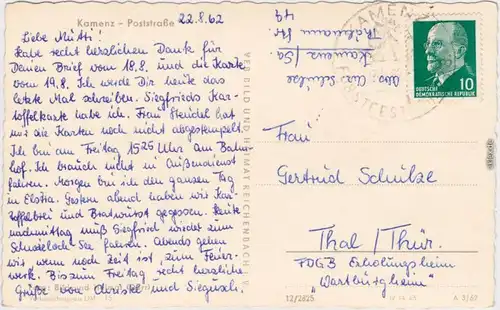 Kamenz – Poststraße
22.8.62
Liebe Mutti!
Habe recht herzlichen Dank für
Deinen Brief vom 18.8. und die Karte
vom 19.8. Ich werde Dir heute das
letzte Mal schreiben. Siegfrieds Kar-
toffelkarte habe ich. Frau Steudel hat
mir die Karten noch nicht abgestempelt.
Ich bin am Freitag 1525 Uhr am Bahn-
hof. Ich brauch nicht in Außendienst
fahren. Morgen bin ich den ganzen Tag
in Elstra. Gestern abend haben wir Kar-
toffelbrei und Bratwurst gegessen. Heute
nachmittag muß Siegfried wieder zum
See fahren. Abends gehen
wir, wenn noch Zeit ist, zum Feuer-
werk. Bis zum Freitag recht herzliche
Grüße von Christel und
VERLAG BILD UND HEIMAT REICHENBACH I. V.
Abs.: Schulze
Kamenz/Sa.
Str.
49
KAMENZ
FORSTFEST
10
DEUTSCHE
DEMOKRATISCHE REPUBLIK
Frau
Gertrud Schulze
Thal/Thür.
FDGB Erholungsheim
"Wartburgheim"
12/2825
A 3/62